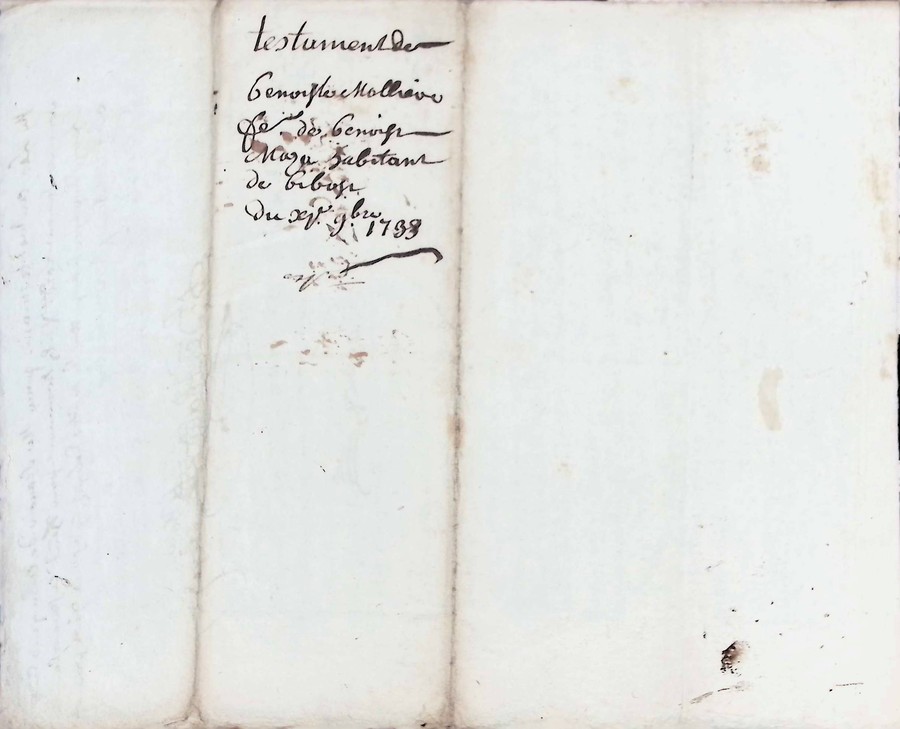 testament de
benoiste Mollière
fe. de benoist
Maza habitant
de bibost
du xje 9bre
1733